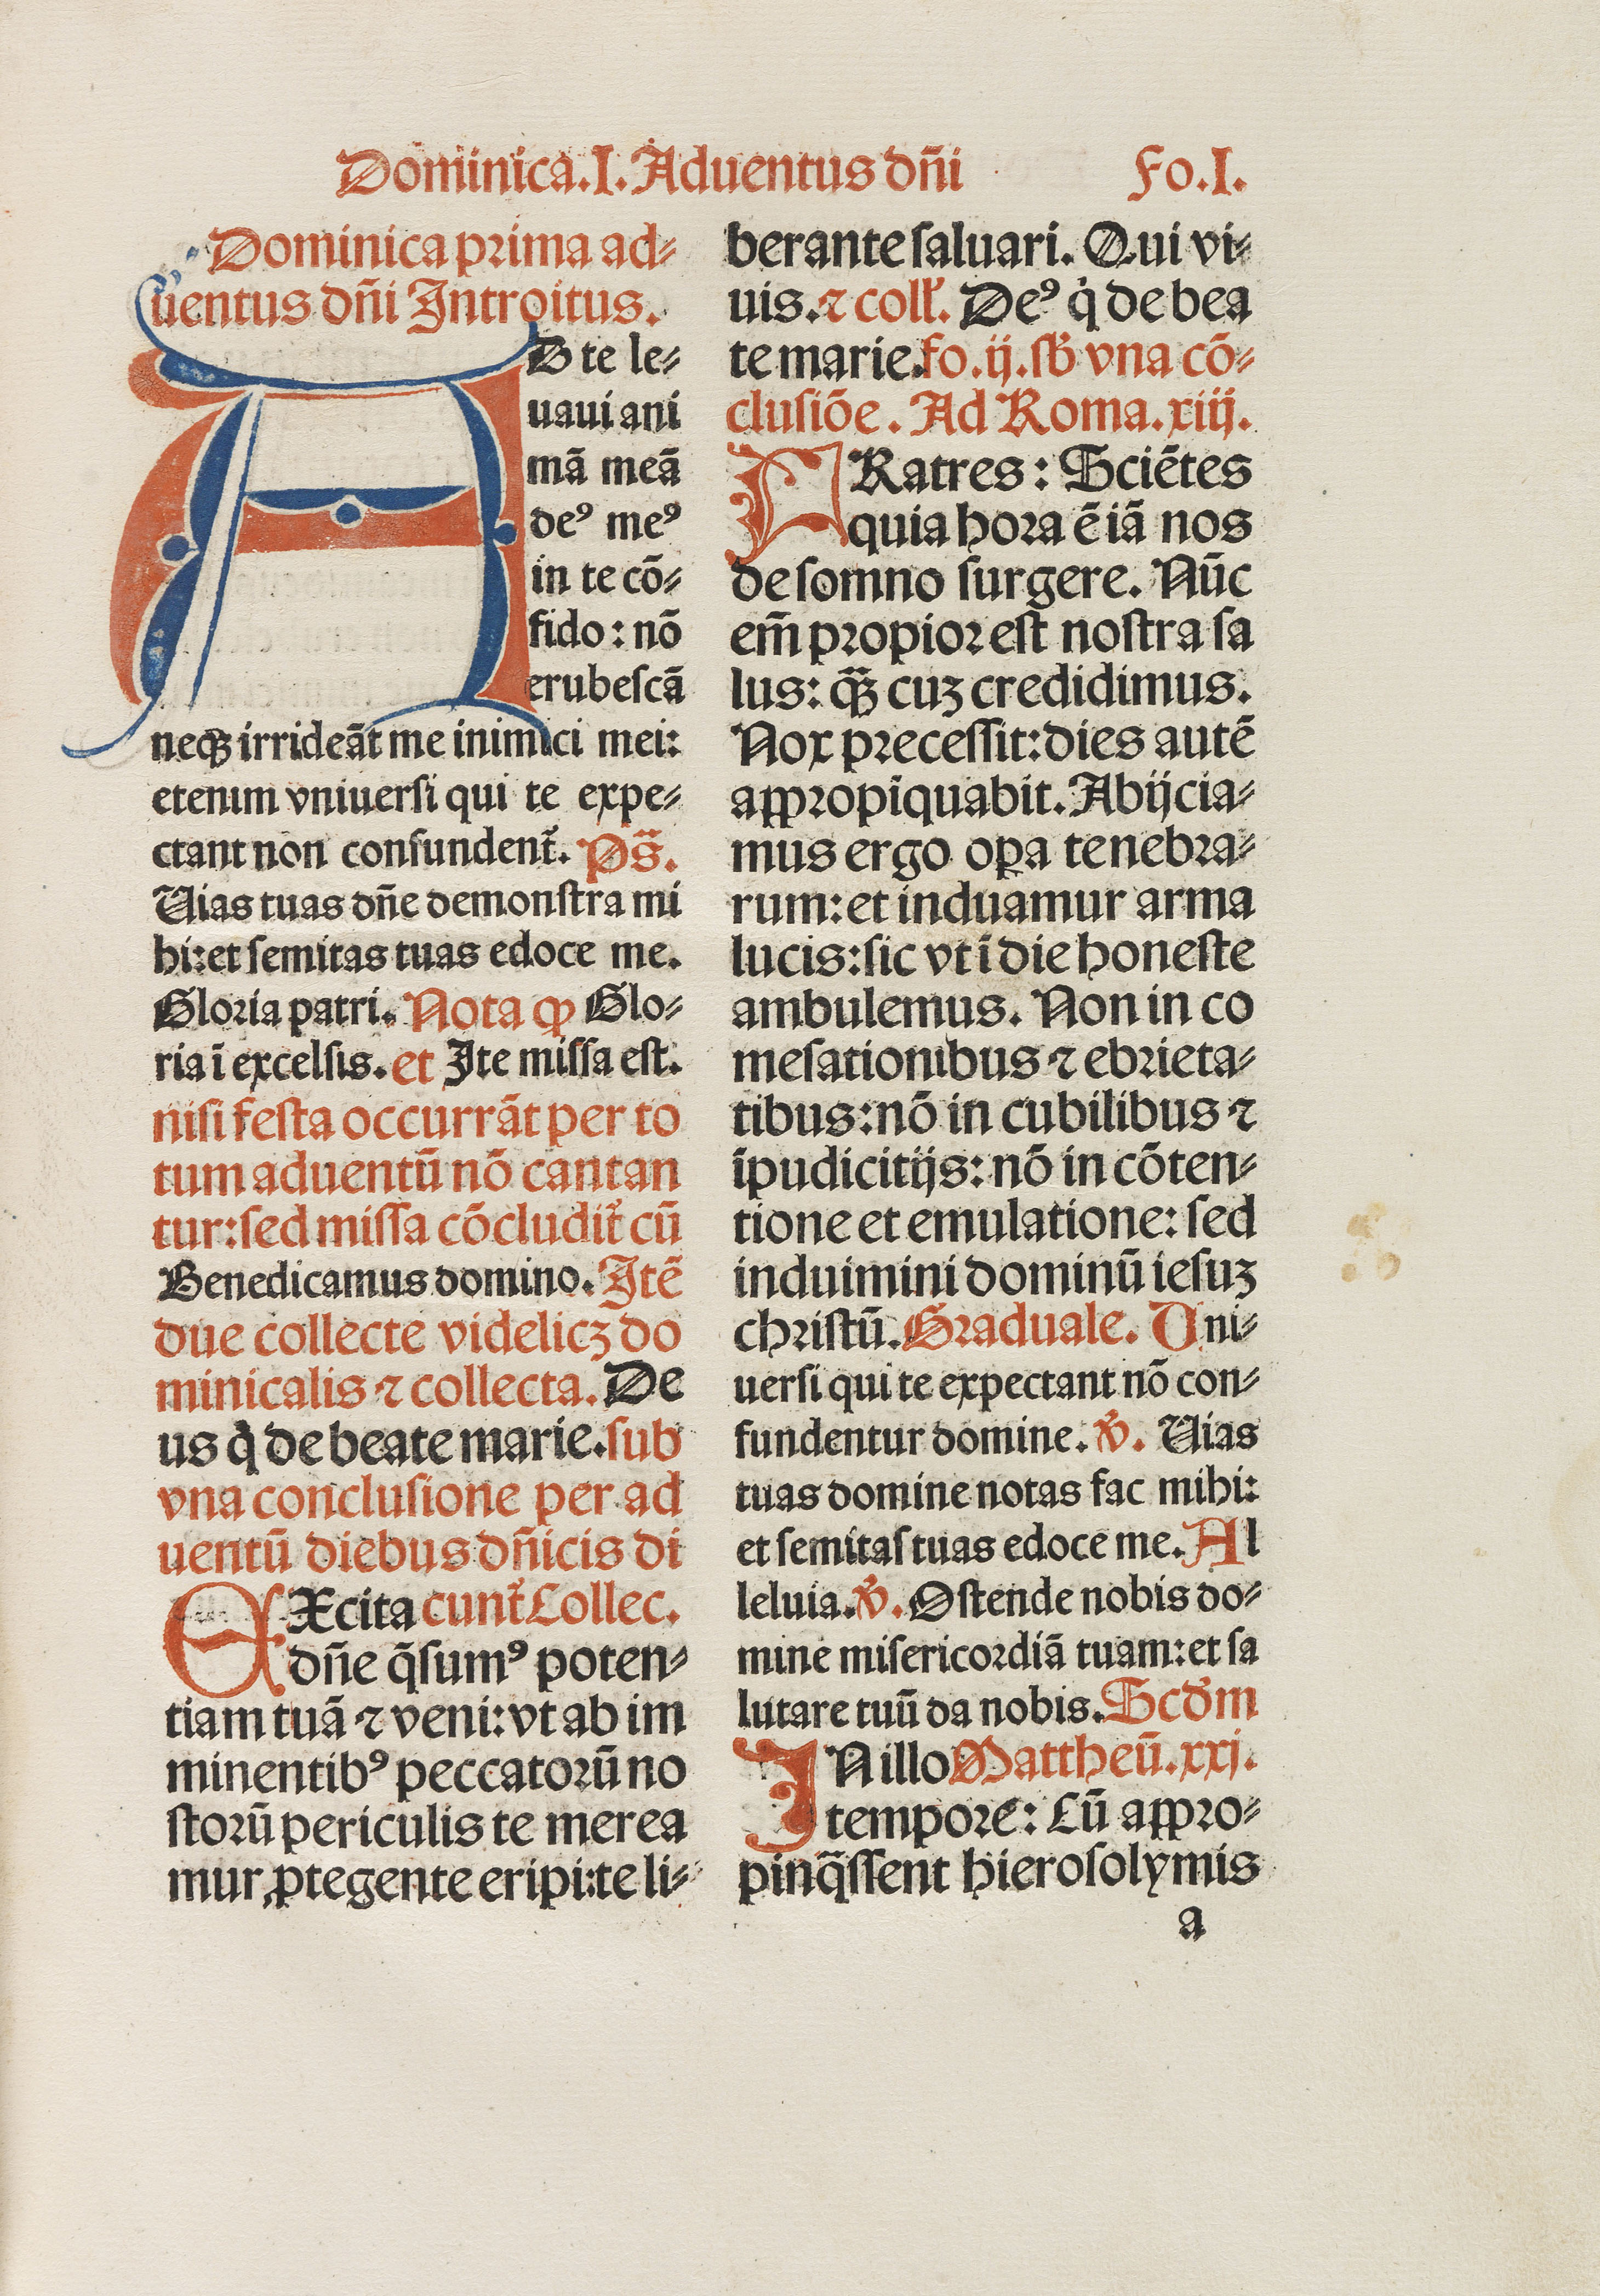 Dominica.I.Aduentus dñi Fo.I.
Dominica prima ad⸗
uentus dñi Introitus.
AD te le⸗
uaui ani
mā meā
deꝰ meꝰ
in te cō⸗
fido: nō
erubeſcā
neqꝫ irrideāt me inimici mei:
etenim vniuerſi qui te expe⸗
ctant non confundent̄. Ps̄.
Uias tuas dñe demonſtra mi
hi:et ſemitas tuas edoce me.
Gloria patri. Nota ꝙ Glo⸗
ria ī excelſis. et Ite miſſa eſt.
niſi feſta occurrāt per to
tum aduentū nō cantan
tur:ſed miſſa cōcludit̄ cū
Benedicamus domino. Itē
due collecte videlicꝫ do
minicalis ⁊ collecta. De
us q̇ de beate marie.ſub
vna concluſione per ad
uentū diebus dñicis di
EXcita cunt̄ Collec.
dñe q̄ſumꝰ poten⸗
tiam tuā ⁊ veni:vt ab im
minentibꝰ peccatorū no
ſtorū periculis te merea
mur ꝓtegente eripi:te li⸗
berante ſaluari. Qui vi⸗
uis.⁊ coll̄. Deꝰ q̇ de bea
te marie.fo.ij.ſb̄ vna cō⸗
cluſiōe. Ad Roma.xiij.
FRatres: Sciētes
quia hora ē iā nos
de ſomno ſurgere. Nūc
em̄ propior eſt noſtra ſa
lus: qꝫ̄ cuꝫ credidimus.
Nox preceſſit:dies autē
appropīquabit. Abijcia⸗
mus ergo oꝑa tenebra⸗
rum:et induamur arma
lucis:ſic vt ī die honeſte
ambulemus. Non in co
meſationibus ⁊ ebrieta⸗
tibus:nō in cubilibus ⁊
īpudicitijs: nō in cōten⸗
tione et emulatione: ſed
induimini dominū ieſuꝫ
chriſtū. Graduale. Uni⸗
uerſi qui te expectant nō con⸗
fundentur domine. v̄. Uias
tuas domine notas fac mihi:
et ſemitaſ tuas edoce me. Al
leluia. v̄. Oſtende nobis do⸗
mine miſericordiā tuam:et ſa
lutare tuū da nobis. Scd̄m
IN illo Mattheū.xxj.
tempore: Cū appro⸗
pinq̄ſſent hieroſolymis
a